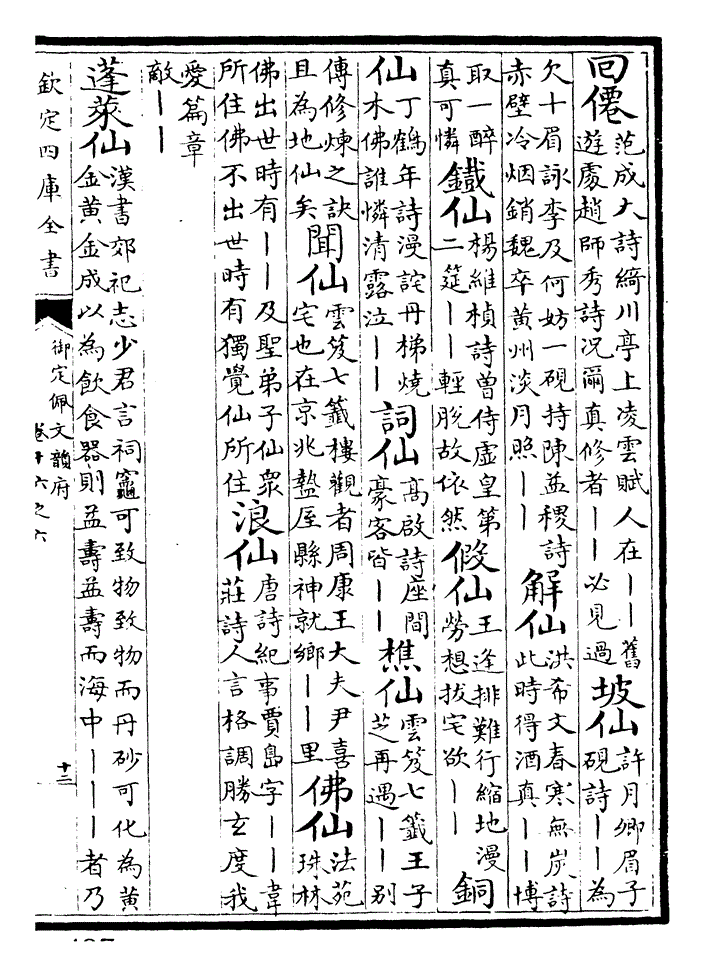 回僊范成大詩綺川亭上凌雲賦人在丨丨舊
遊處趙師秀詩况爾真修者丨丨必見過坡仙許月卿眉子
硯詩丨丨為
欠十眉詠李及何妨一硯持陳益稷詩
赤壁冷烟銷魏卒黄州淡月照丨丨解仙洪希文春寒無炭詩
此時得酒真丨丨博
取一醉
真可憐鐵仙楊維楨詩曽侍虚皇第
二筵丨丨輕脱故依然假仙王逢排難行縮地漫
勞想拔宅欲丨丨銅
仙丁鶴年詩漫詫丹梯燒
木佛誰憐清露泣丨丨詞仙高啟詩座間
豪客皆丨丨樵仙雲笈七籤王子
芝再遇丨丨别
傳修煉之訣
且為地仙矣聞仙雲笈七籤樓觀者周康王大夫尹喜
宅也在京兆盩厔縣神就鄉丨丨里佛仙法苑
珠林
佛出世時有丨丨及聖弟子仙衆
所住佛不出世時有獨覺仙所住浪仙唐詩紀事賈島字丨丨韋
莊詩人言格調勝玄度我
愛篇章
敵丨丨
蓬萊仙漢書郊祀志少君言祠竈可致物致物而丹砂可化為黄
金黄金成以為飲食器則益壽益壽而海中丨丨丨者乃
欽定四庫全書
御定佩文韻府
卷十六之六
十三